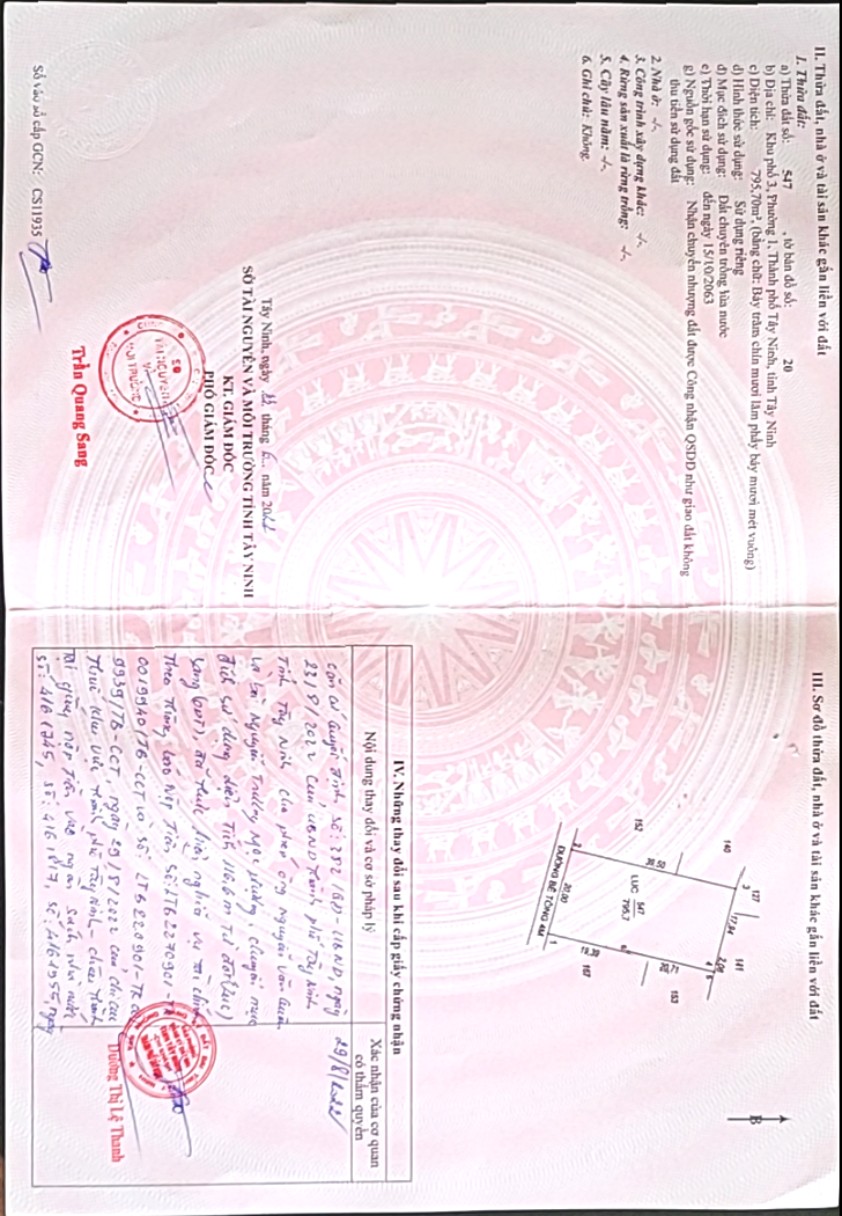 II. Thửa đất, nhà ở và tài sản khác gắn liền với đất
1. Thửa đất:
a) Thửa đất số: 547 , tờ bản đồ số: 20
b) Địa chỉ: Khu phố 3, Phường 1, Thành phố Tây Ninh, tỉnh Tây Ninh
c) Diện tích: 795,70m², (bằng chữ: Bảy trăm chín mươi lăm phẩy bảy mươi mét vuông)
d) Hình thức sử dụng: Sử dụng riêng
đ) Mục đích sử dụng: Đất chuyên trồng lúa nước
e) Thời hạn sử dụng: đến ngày 15/10/2063
g) Nguồn gốc sử dụng: Nhận chuyển nhượng đất được Công nhận QSDĐ như giao đất không
thu tiền sử dụng đất
2. Nhà ở: -/-
3. Công trình xây dựng khác: -/-
4. Rừng sản xuất là rừng trồng: -/-
5. Cây lâu năm: -/-
6. Ghi chú: Không.
Tây Ninh, ngày tháng năm 2022
SỞ TÀI NGUYÊN VÀ MÔI TRƯỜNG TỈNH TÂY NINH
KT. GIÁM ĐỐC
PHÓ GIÁM ĐỐC
SỞ
TÀI NGUYÊN
VÀ
MÔI TRƯỜNG
Trần Quang Sang
Số vào sổ cấp GCN: CS11935
III. Sơ đồ thửa đất, nhà ở và tài sản khác gắn liền với đất
B
140
127
141
3
17.94
2.06
4
5
152
LUC 547
795.7
153
6
19.39
2
20.00
1
167
ĐƯỜNG BÊ TÔNG 4M
IV. Những thay đổi sau khi cấp giấy chứng nhận
Nội dung thay đổi và cơ sở pháp lý
Xác nhận của cơ quan
có thẩm quyền
Căn cứ Quyết định số: /QĐ-UBND, ngày
23/8/2022 của UBND thành phố Tây Ninh
tỉnh Tây Ninh cho phép ông Nguyễn Văn
và bà Nguyễn Trương Ngọc Phượng, chuyển mục
đích sử dụng diện tích 116,6 m² từ đất (LUC)
sang (ODT), đã thực hiện nghĩa vụ tài chính
theo thông báo nộp tiền số:
29/8/2022
ngày 29/8/2022 của chi cục
thuế khu vực thành phố Tây Ninh - Châu Thành
nộp tiền vào ngân sách nhà nước
số: 4161745, số:
Dương Thị Lệ Thanh